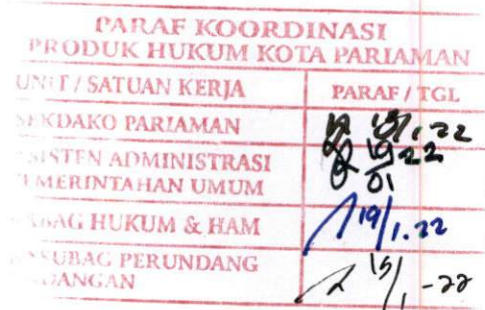 PARAF KOORDINASI
PRODUK HUKUM KOTA PARIAMAN
UNIT / SATUAN KERJA PARAF / TGL
SEKDAKO PARIAMAN
ASISTEN ADMINISTRASI
PEMERINTAHAN UMUM
KABAG HUKUM & HAM 19/1.22
KASUBAG PERUNDANG
UNDANGAN